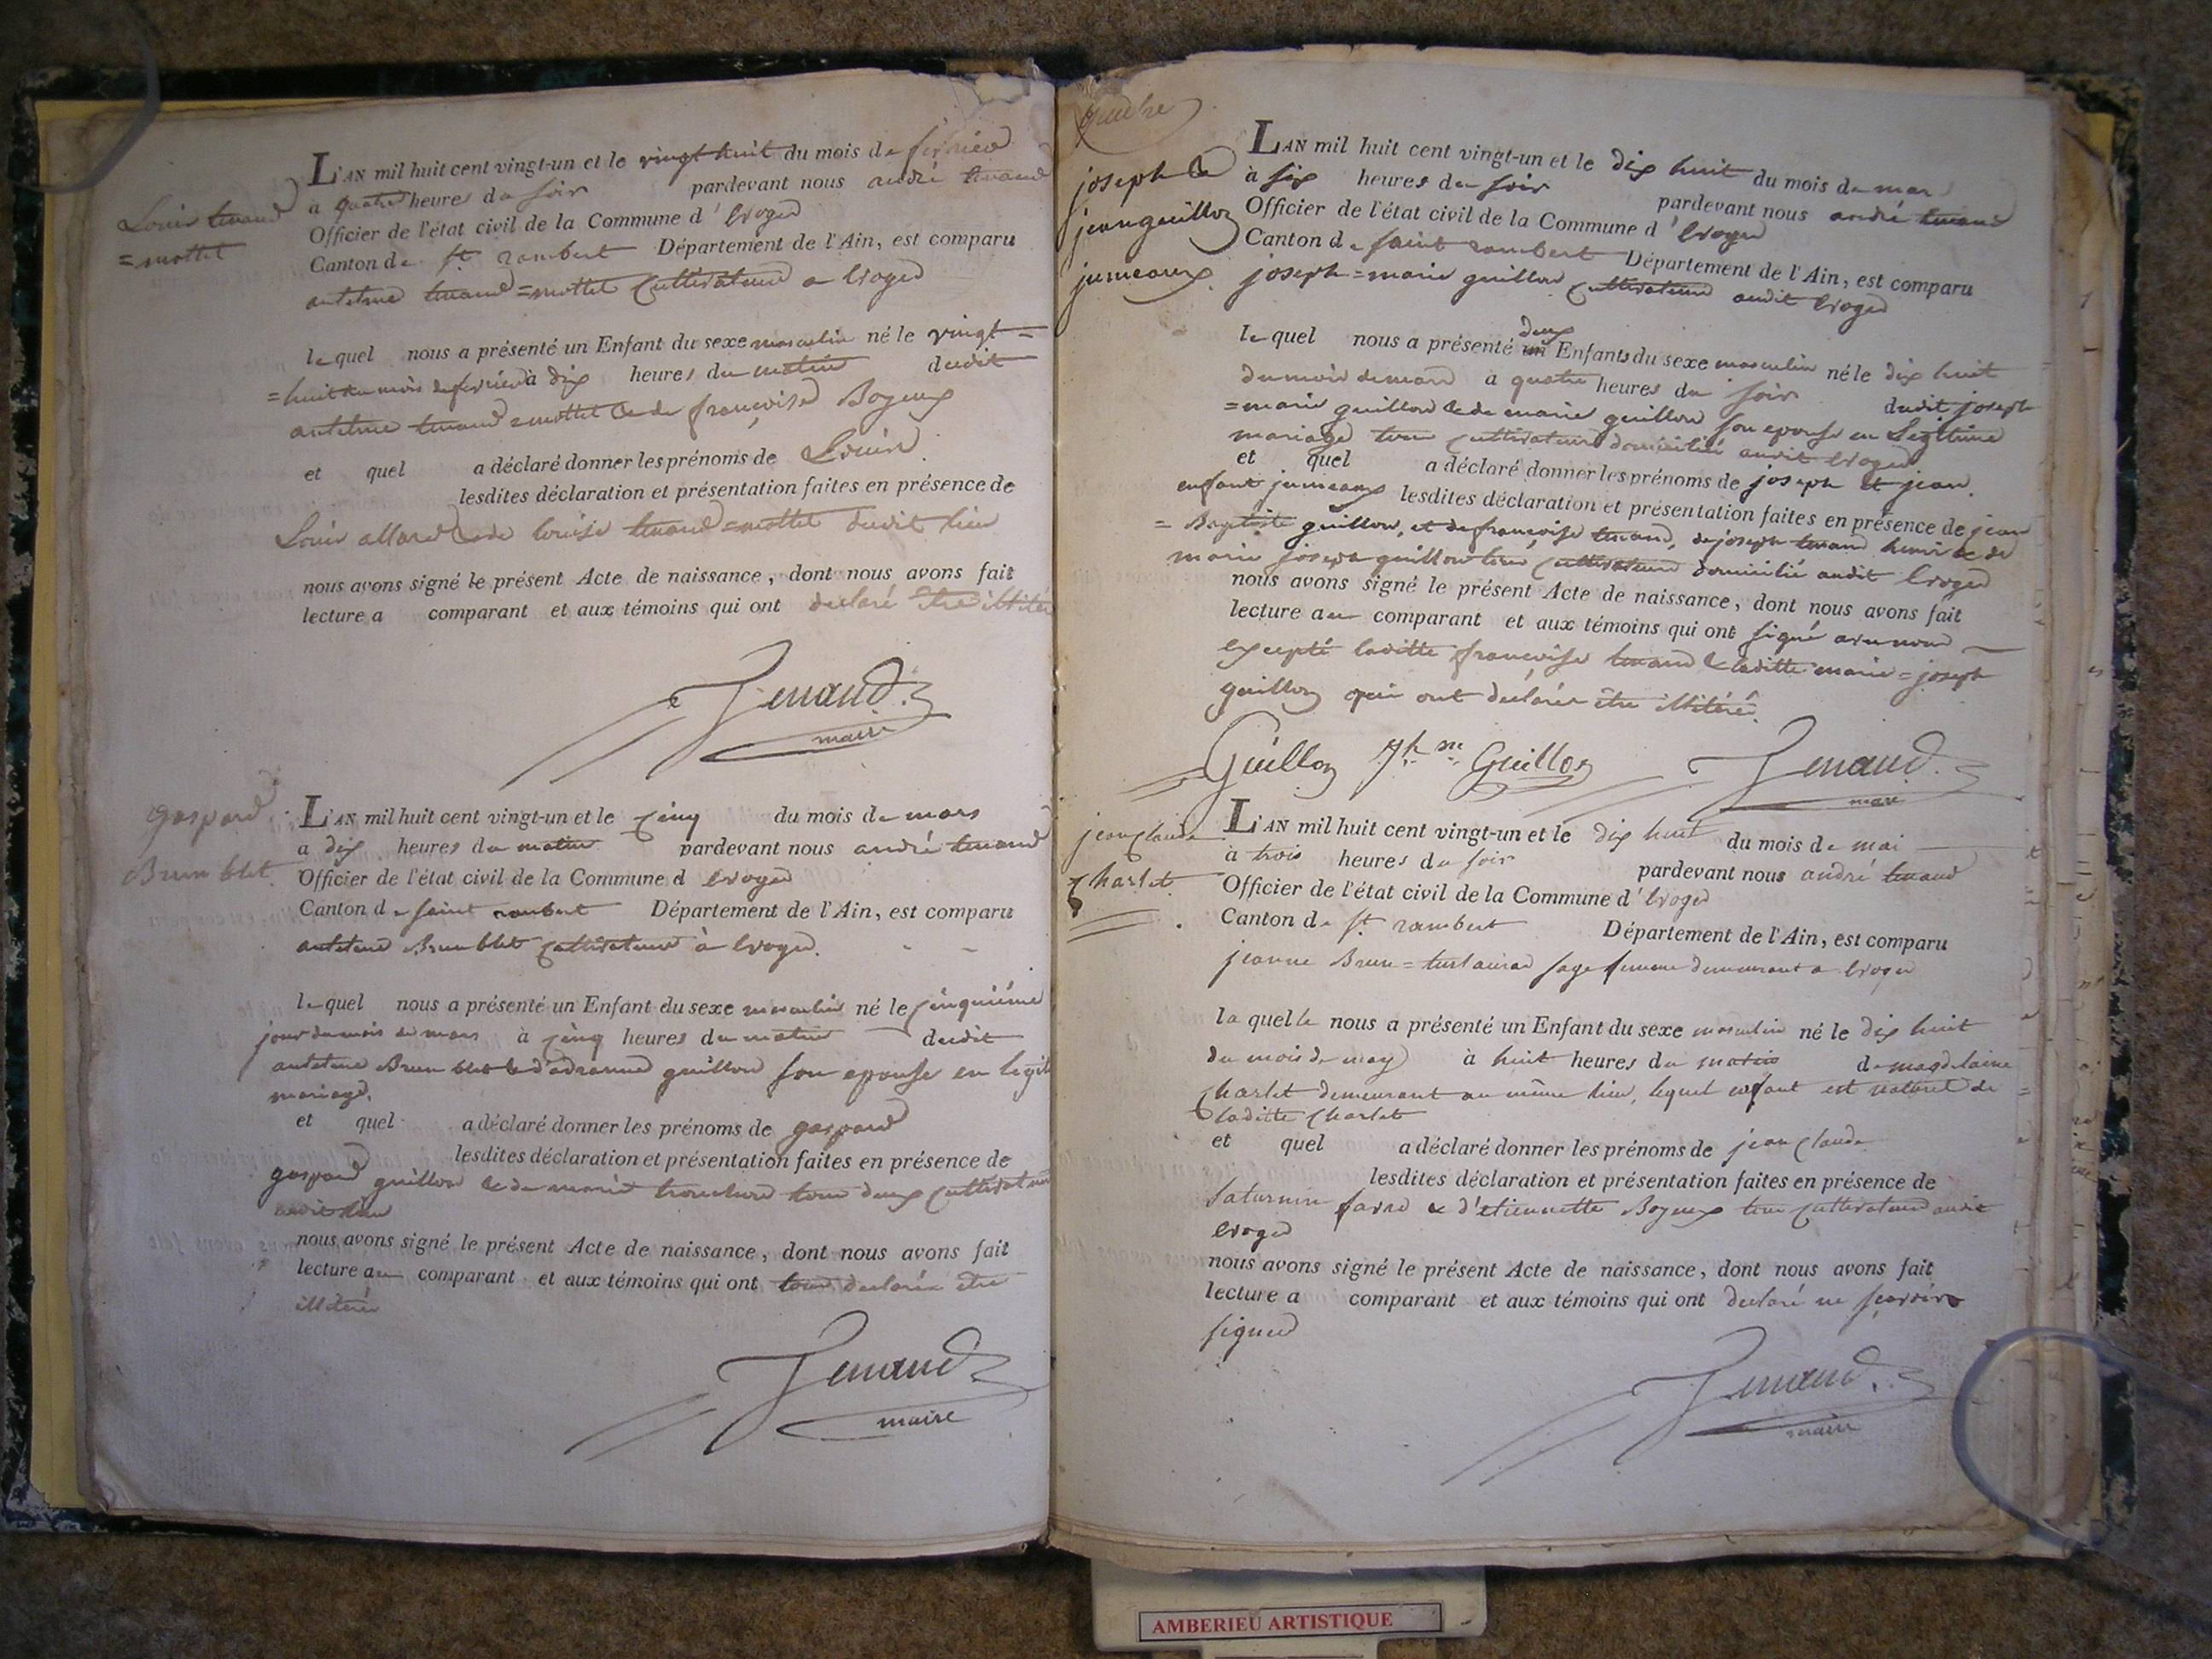 Louis tenand
=mottet
L'AN mil huit cent vingt-un et le vingt huit du mois de fevrier
a quatre heures du soir pardevant nous andré tenand
Officier de l'état civil de la Commune d' Evoges
Canton de st rambert Département de l'Ain, est comparu
antelme tenand=mottet Cultivateur a Evoges
le quel nous a présenté un Enfant du sexe masculin né le vingt=
=huit du mois de fevrier à dix heures du matin dudit
antelme tenand=mottet & de françoise Bogeux
et quel a déclaré donner les prénoms de Louis.
lesdites déclaration et présentation faites en présence de
Louis allard & de louise tenand=mottet dudit lieu
nous avons signé le présent Acte de naissance, dont nous avons fait
lecture a comparant et aux témoins qui ont declaré être
Tenand
maire
gaspard
Brun blet.
L'AN mil huit cent vingt-un et le Cinq du mois de mars
a dix heures du matin pardevant nous andré tenand
Officier de l'état civil de la Commune d Evoges
Canton de saint rambert Département de l'Ain, est comparu
antelme Brun blet Cultivateur à Evoges.
le quel nous a présenté un Enfant du sexe masculin né le Cinquiéme
jour du mois de mars à Cinq heures du matin dudit
antelme Brun blet & d' guillon son epouse en
mariage.
et quel a déclaré donner les prénoms de gaspard
lesdites déclaration et présentation faites en présence de
gaspard guillon & de marie tous deux Cultivateurs
nous avons signé le présent Acte de naissance, dont nous avons fait
lecture au comparant et aux témoins qui ont tous declarés être
illiterés
Tenand
maire
joseph &
jean guillon
jumeaux.
L'AN mil huit cent vingt-un et le dix huit du mois de mars
à six heures du soir pardevant nous andré tenand
Officier de l'état civil de la Commune d' Evoges
Canton de saint rambert Département de l'Ain, est comparu
joseph=marie guillon Cultivateur audit Evoges
deux
le quel nous a présenté un Enfants du sexe masculin né le dix huit
du mois de mars a quatre heures du soir dudit joseph
=marie guillon & de marie guillon son epouse en Legitime
mariage tous Cultivateurs domiciliés audit Evoges
et quel a déclaré donner les prénoms de joseph et jean.
enfant jumeaux lesdites déclaration et présentation faites en présence de jean
=Baptiste guillon, et de françoise tenand, de joseph tenand & de
marie joseph guillon tous Cultivateurs domicilié audit Evoges
nous avons signé le présent Acte de naissance, dont nous avons fait
lecture au comparant et aux témoins qui ont signé avec nous
excepté laditte françoise tenand & laditte marie=joseph
guillon qui ont declarés être illiterés.
Guillon Jh me Guillon Tenand
maire
jean Claude
Charlet
L'AN mil huit cent vingt-un et le dix huit du mois de mai
à trois heures du soir pardevant nous andré tenand
Officier de l'état civil de la Commune d' Evoges
Canton de st rambert Département de l'Ain, est comparu
jeanne Brun= sage femme demeurant a Evoges
la quelle nous a présenté un Enfant du sexe masculin né le dix huit
du mois de may à huit heures du matin de magdelaine
Charlet demeurant au même lieu, lequel enfant est naturel de
laditte Charlet
et quel a déclaré donner les prénoms de jean Claude
lesdites déclaration et présentation faites en présence de
Saturnin favre & d'etiennette Bogeux tous Cultivateurs audit
Evoges
nous avons signé le présent Acte de naissance, dont nous avons fait
lecture a comparant et aux témoins qui ont declaré ne sçavoir
signer
Tenand
maire
AMBERIEU ARTISTIQUE